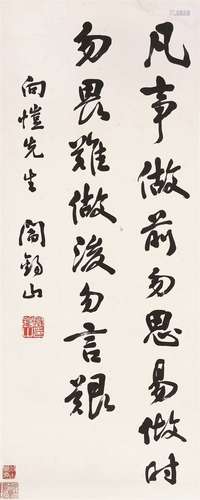 凡事做前勿思易做时
勿畏難做後勿言艱
向愷先生 閻錫山